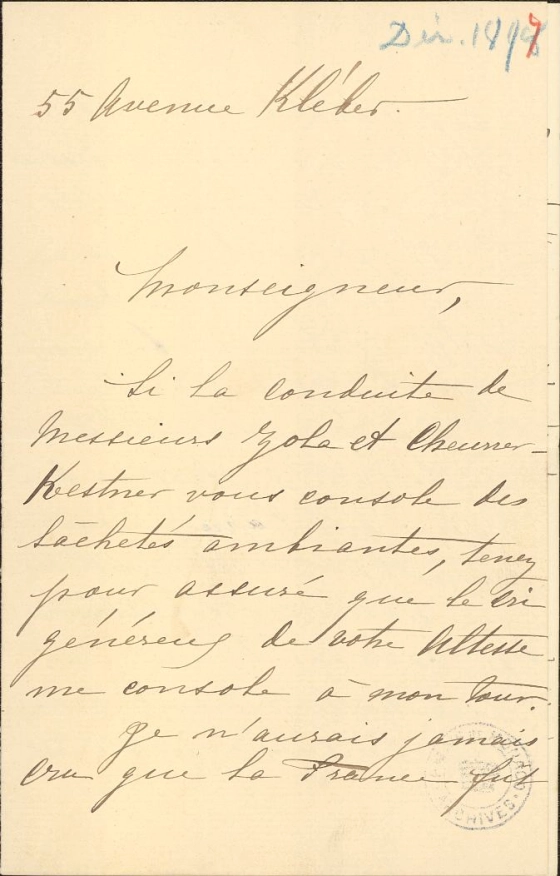 Dec. 1897
55 Avenue Kléber.
Monseigneur,
Si la conduite de
Messieurs Zola et Cheurer-
Kestner vous console des
lâchetés ambiantes, tenez
pour assuré que le cri
généreux de votre Altesse
me console à mon tour.
Je n'aurais jamais
cru que la France fut
ARCHIVES